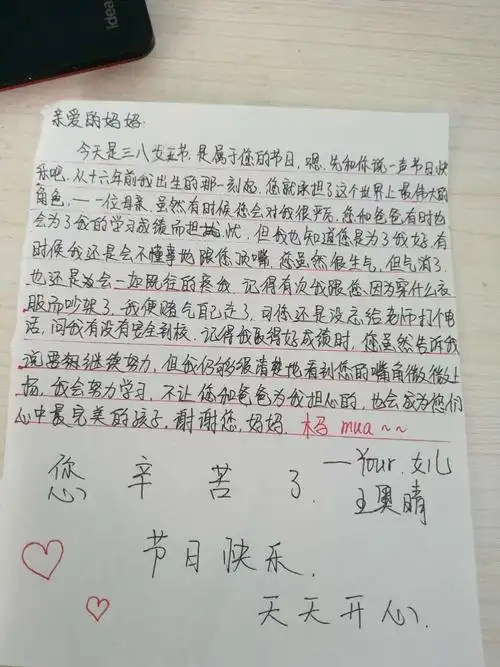 idea
亲爱的妈妈:
今天是三八女王节,是属于您的节日,嗯,先和你说一声节日快
乐吧,从十六年前我出生的那一刻起,您就承担了这个世界上最伟大的
角色,——一位母亲,虽然有时候您会对我很严厉,您和爸爸有时也
会为了我的学习成绩而担忧,但我也知道您是为了我好,有
时候我还是会不懂事地跟您顶嘴,您虽然很生气,但气消了,
也还是会一如既往的疼我,记得有次我跟您,因为穿什么衣
服而吵架了,我便赌气自己走了,可您还是没忘给老师打个电
话,问我有没有安全到校,记得我取得好成绩时,您虽然告诉我
说要继续努力,但我仍能够很清楚地看到您的嘴角微微上
扬,我会努力学习,不让您和爸爸为我担心的,也会成为你们
心中最完美的孩子,谢谢您,妈妈 mua~~
您辛苦了.
——Your.女儿
王奥晴
节日快乐.
天天开心.